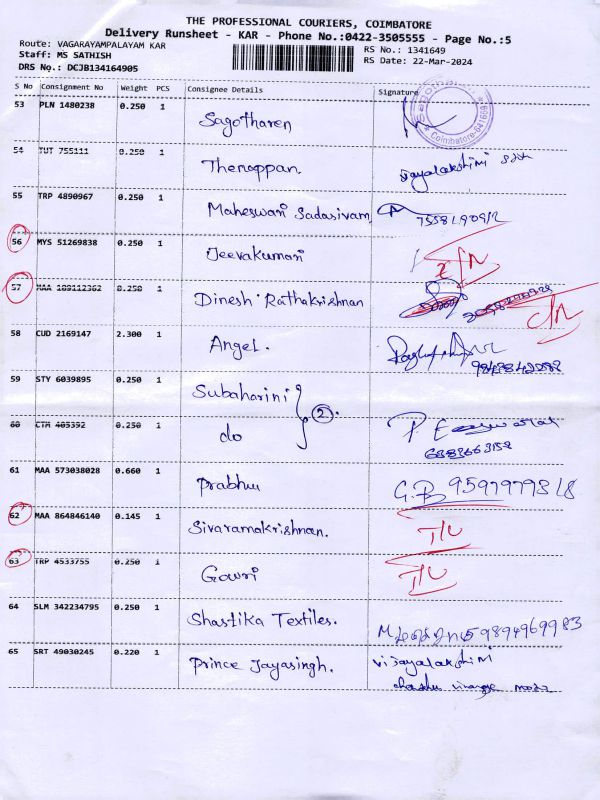 THE PROFESSIONAL COURIERS, COIMBATORE
Delivery Runsheet - KAR - Phone No.:0422-3505555 - Page No.:5
Route: VAGARAYAMPALAYAM KAR
RS No.: 1341649
Staff: MS SATHISH
RS Date: 22-Mar-2024
DRS No.: DCJB134164905
S No Consignment No Weight PCS Consignee Details Signature
53 PLN 1480238 0.250 1 Sagotharen
Coimbatore-641659
54 TUT 755111 0.250 1 Thenappan
55 TRP 4890967 0.250 1 Maheswari Sadasivam
56 MYS 51269838 0.250 1 Jeevakumari
57 MAA 189112362 0.250 1 Dinesh Rathakrishnan
58 CUD 2169147 2.300 1 Angel.
59 STY 6039895 0.250 1 Subaharini
2.
60 CTM 405392 0.250 1 do
61 MAA 573038028 0.660 1 Prabhu G.B
62 MAA 864846140 0.145 1 Sivaramakrishnan. T/U
63 TRP 4533755 0.250 1 Gowri T/U
64 SLM 342234795 0.250 1 Shastika Textiles.
65 SRT 49030245 0.220 1 Prince Jayasingh. Vijayalakshimi